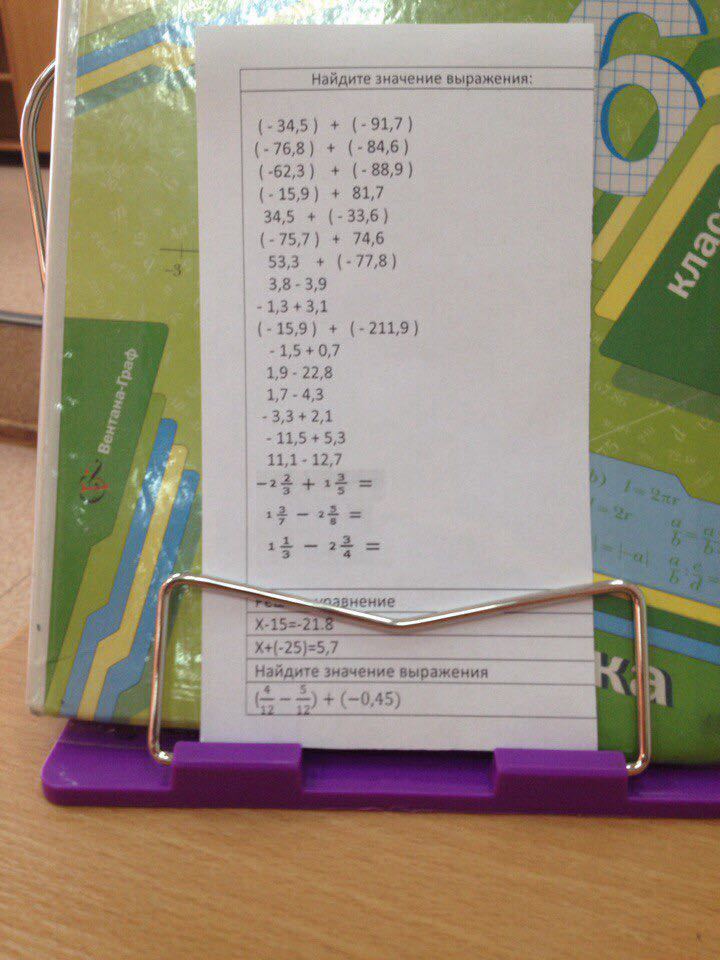 6
Найдите значение выражения:
( - 34,5 ) + ( - 91,7 )
( - 76,8 ) + ( - 84,6 )
( -62,3 ) + ( - 88,9 )
( - 15,9 ) + 81,7
34,5 + ( - 33,6 )
( - 75,7 ) + 74,6
53,3 + ( - 77,8 )
3,8 - 3,9
- 1,3 + 3,1
( - 15,9 ) + ( - 211,9 )
- 1,5 + 0,7
1,9 - 22,8
1,7 - 4,3
- 3,3 + 2,1
- 11,5 + 5,3
11,1 - 12,7
−2 2/3 + 1 3/5 =
1 3/7 − 2 5/8 =
1 1/3 − 2 3/4 =
уравнение
X-15=-21.8
X+(-25)=5,7
Найдите значение выражения
(4/12 − 5/12) + (−0,45)
−3
Вентана-Граф
клас
b) l = 2πr
= 2r
a/b =
= |−a|
ка